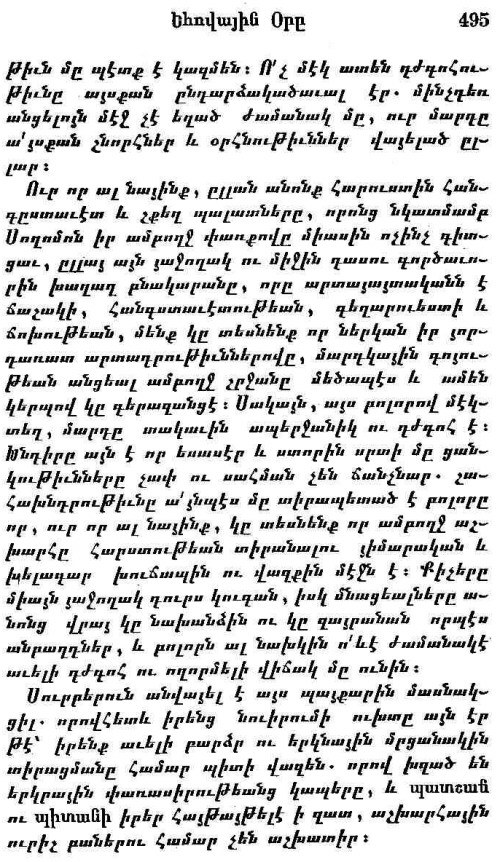 Եհովային Օրը 495
թիւն մը պէտք է կազմեն։ Ո՛չ մէկ ատեն դժգոհու-
թիւնը այսքան ընդարձակածաւալ էր. մինչդեռ
անցելոյն մէջ չէ եղած ժամանակ մը, ուր մարդը
ա՛յսքան շնորհներ և օրհնութիւններ վայելած ըլ-
լար։
Ուր որ ալ նայինք, ըլլան անոնք Հարուստին Հան-
գըստաւէտ և շքեղ պալատները, որոնց նկատմամբ
Սողոմոն իր ամբողջ փառքովը միասին ոչինչ գիտ-
ցաւ, ըլլայ այն յաջողակ ու միջին դասու գործաւո-
րին խաղաղ բնակարանը, որը արտայայտականն է
ճաշակի, Հանգստաւէտութեան, գեղարուեստի և
ճոխութեան, մենք կը տեսնենք որ ներկան իր յոր-
դառատ արտադրութիւններովը, մարդկային գոյու-
թեան անցեալ ամբողջ շրջանը մեծապէս և ամեն
կերպով կը գերազանցէ։ Սակայն, այս բոլորով մէկ-
տեղ, մարդը տակաւին ապերջանիկ ու դժգոհ է։
Խնդիրը այն է որ եսասէր և ստորին սրտի մը ցան-
կութիւնները չափ ու սահման չեն ճանչնար. շա-
Հախնդրութիւնը ա՛յնպէս մը տիրապետած է բոլորը
որ, ուր որ ալ նայինք, կը տեսնենք որ ամբողջ աշ-
խարհը Հարստութեան տիրանալու յիմարական և
խելագար խուճապին ու վազքին մէջն է։ Քիչերը
միայն յաջողակ դուրս կուգան, իսկ մնացեալները ա-
նոնց վրայ կը նախանձին ու կը զայրանան որպէս
անբաղդներ, և բոլորն ալ նախկին ո՛ևէ ժամանակէ
աւելի դժգոհ ու ողորմելի վիճակ մը ունին։
Սուրբերուն անվայել է այս պայքարին մասնակ-
ցիլ. որովհետև իրենց նուիրումի ուխտը այն էր
թէ՝ իրենք աւելի բարձր ու երկնային մրցանակին
տիրացմանը Համար պիտի վազեն. որով խզած են
երկրային փառասիրութեանց կապերը, և պատշաճ
ու պիտանի իրեր Հայթայթելէ ի զատ, աշխարհային
ուրիշ բաներու Համար չեն աշխատիր։